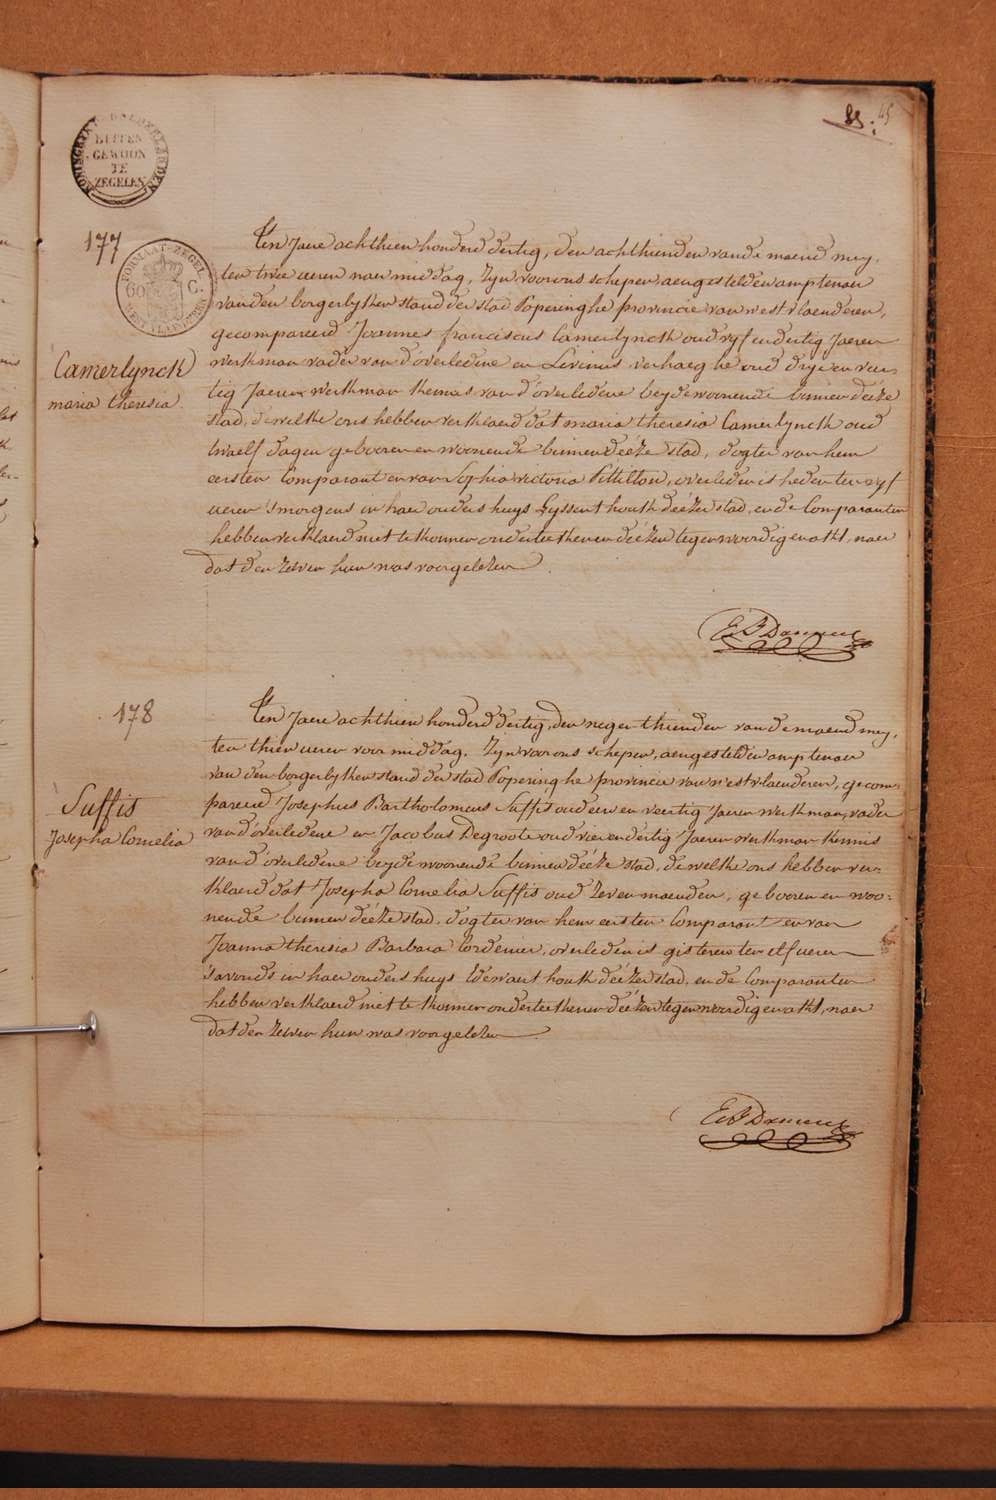 85. 45
KONINGRYK DER NEDERLANDEN
BUITEN
GEWOON
TE
ZEGELEN
177
FORMAAT-ZEGEL
60 C.
WEST VLAENDEREN
Camerlynck
maria theresia
Ten Jaere achthien honderd dertig, den achthienden van de maend mey,
ten twee ueren naer middag, Zyn voor ons schepen, aengestelden amptenaer
van den borgerlyken stand der stad Poperinghe provincie van westvlaenderen,
gecompareerd Joannes franciscus Camerlynck oud vyf en dertig Jaeren
werkman vader van d'overledene en Livinus verhaeghe oud dry en veer-
tig Jaeren werkman kennis van d'overledene beyde woonende binnen deéze
stad, dewelke ons hebben verklaerd dat maria theresia Camerlynck oud
twaelf dagen gebooren en woonende binnen deéze stad, dogter van hem
eersten Comparant en van Sophia victoria Pittilton, overleden is heden ten vyf
ueren 's morgens in haer ouders huys Gyssent houk deézer stad, en de Comparanten
hebben verklaerd niet te konnen onderteekenen deézen tegenwoordigen akt, naer
dat den zelven hun was voorgelezen.
178
Suffis
Josepha Cornelia
Ten Jaere achthien honderd dertig, den negen-thienden van de maend mey,
ten thien ueren voor middag, Zyn voor ons schepen, aengestelden amptenaer
van den borgerlyken stand der stad Poperinghe provincie van westvlaenderen, gecom-
pareerd Josephus Bartholomeus Suffis oud een en veertig Jaeren werkman, vader
van d'overledene en Jacobus Degroote oud vier en dertig Jaeren werkman kennis
van d'overledene beyde woonende binnen deéze stad, de welke ons hebben ver-
klaerd dat Josepha Cornelia Suffis oud zeven maenden, gebooren en woo-
nende binnen deéze stad, dogter van hem eersten Comparant en van
Joanna theresia Barbara Cordenier, overleden is gisteren ten elf ueren
s'avonds in haer ouders huys Edewaert houk deézer stad, en de Comparanten
hebben verklaerd niet te konnen onderteekenen deézen tegenwoordigen akt, naer
dat den zelven hun was voorgelezen.